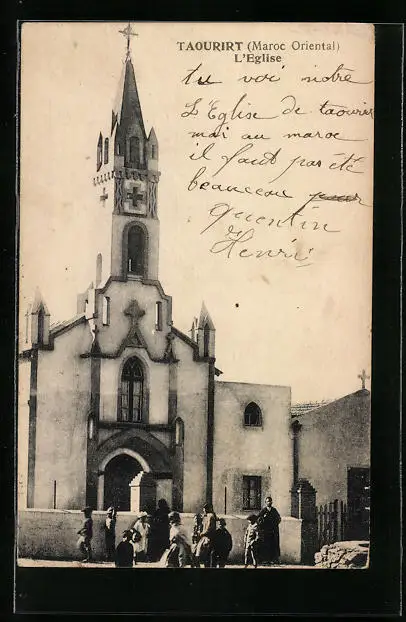 TAOURIRT (Maroc Oriental)
L'Eglise
tu voi notre
L'Eglise de taourir
mai au maroc
il faut pas été
beaucou
quentin
Henri